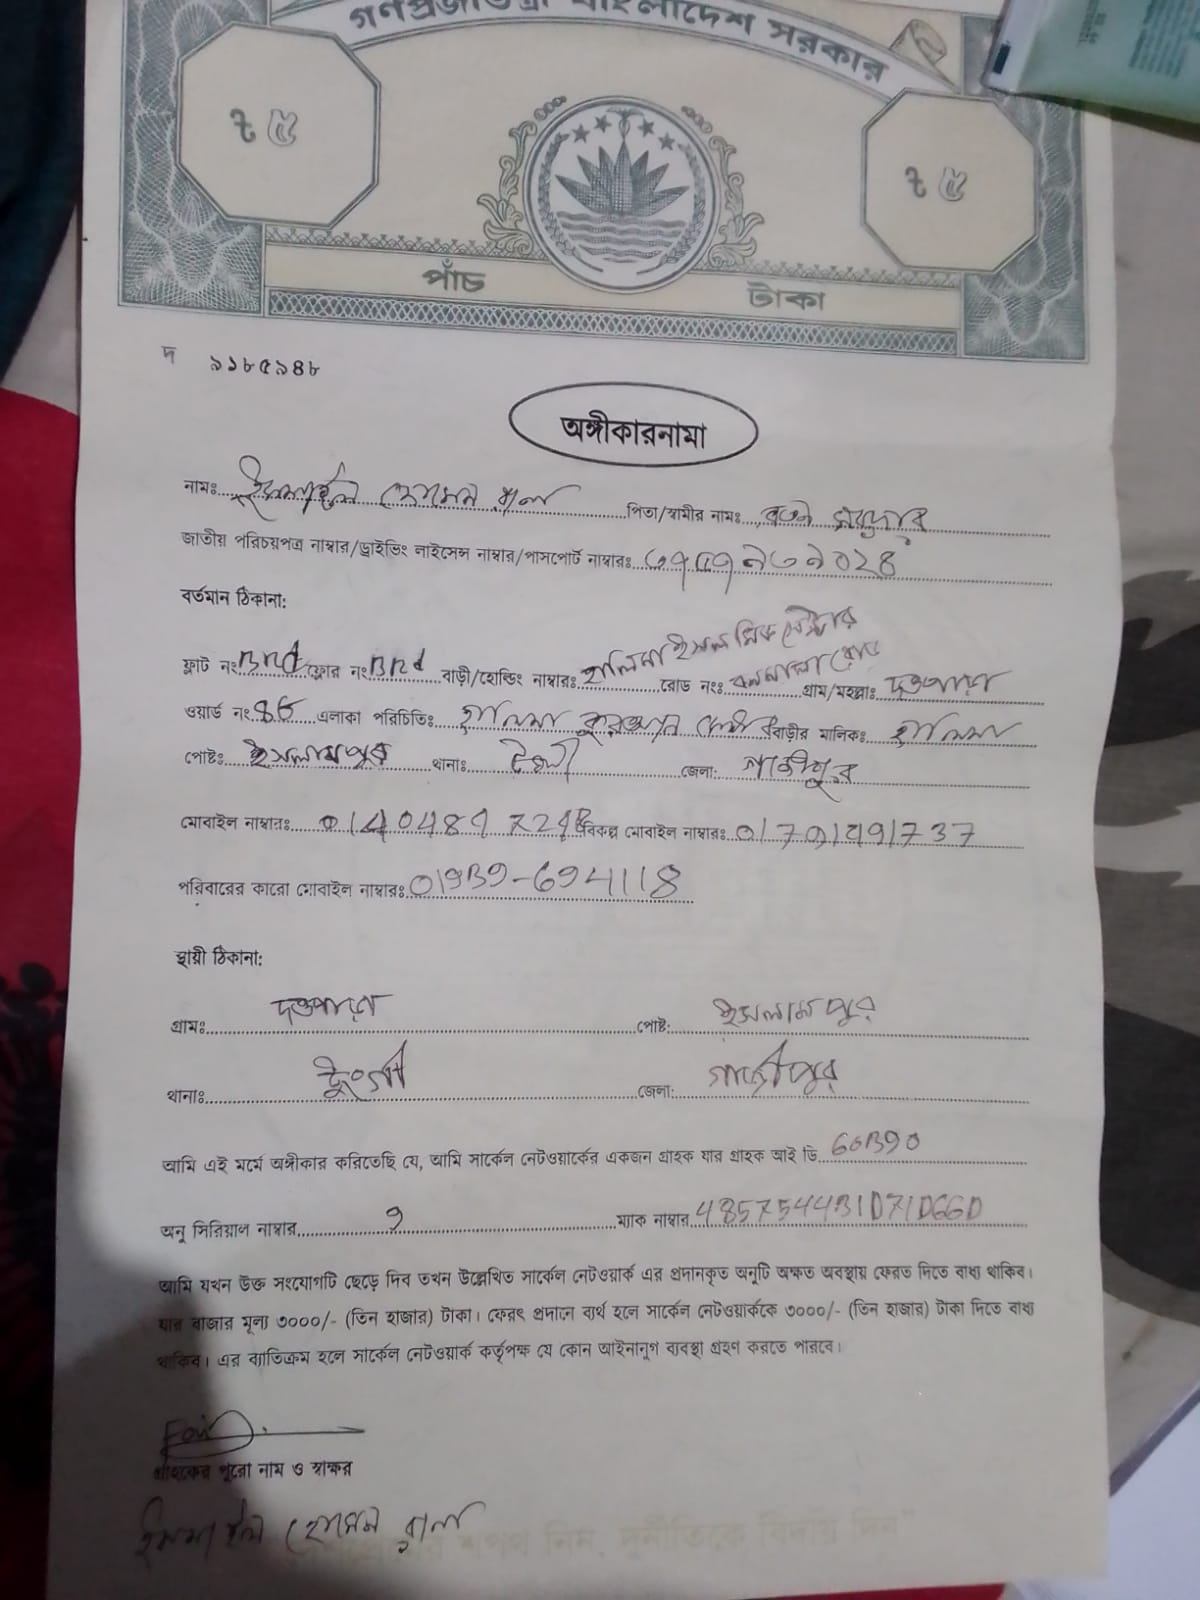 গণপ্রজাতন্ত্রী বাংলাদেশ সরকার
৳ ৫ ৳ ৫
পাঁচ টাকা
দ ৯১৮৫৯৪৮
অঙ্গীকারনামা
নামঃ ইসমাইল হোসেন পিতা/স্বামীর নামঃ রতন সরদার
জাতীয় পরিচয়পত্র নাম্বার/ড্রাইভিং লাইসেন্স নাম্বার/পাসপোর্ট নাম্বারঃ
বর্তমান ঠিকানা:
ফ্লাট নং ফ্লোর নং বাড়ী/হোল্ডিং নাম্বারঃ হালিমা ইসলামিক সেন্টার রোড নংঃ বনমালা রোড গ্রাম/মহল্লাঃ দত্তপাড়া
ওয়ার্ড নং এলাকা পরিচিতিঃ হালিমা বাড়ীর মালিকঃ হালিমা
পোষ্টঃ ইসলামপুর থানাঃ টঙ্গী জেলা: গাজীপুর
মোবাইল নাম্বারঃ বিকল্প মোবাইল নাম্বারঃ
পরিবারের কারো মোবাইল নাম্বারঃ 01939-694118
স্থায়ী ঠিকানা:
গ্রামঃ দত্তপাড়া পোষ্ট: ইসলামপুর
থানাঃ টুংগী জেলা: গাজীপুর
আমি এই মর্মে অঙ্গীকার করিতেছি যে, আমি সার্কেল নেটওয়ার্কের একজন গ্রাহক যার গ্রাহক আই ডি
অনু সিরিয়াল নাম্বার 9 ম্যাক নাম্বার
আমি যখন উক্ত সংযোগটি ছেড়ে দিব তখন উল্লেখিত সার্কেল নেটওয়ার্ক এর প্রদানকৃত অনুটি অক্ষত অবস্থায় ফেরত দিতে বাধ্য থাকিব।
যার বাজার মূল্য ৩০০০/- (তিন হাজার) টাকা। ফেরৎ প্রদানে ব্যর্থ হলে সার্কেল নেটওয়ার্ককে ৩০০০/- (তিন হাজার) টাকা দিতে বাধ্য
থাকিব। এর ব্যতিক্রম হলে সার্কেল নেটওয়ার্ক কর্তৃপক্ষ যে কোন আইনানুগ ব্যবস্থা গ্রহণ করতে পারবে।
গ্রাহকের পুরো নাম ও স্বাক্ষর
ইসমাইল হোসেন
শপথ নিন, দুর্নীতিকে বিদায় দিন"